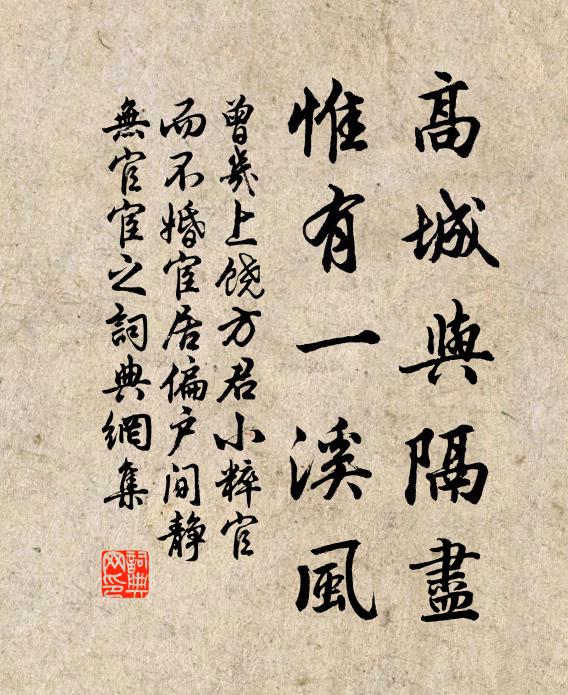 高城與隔盡
惟有一溪風
曾幾上饶方君小粹官
而不婚宦居偏户间静
無官宦之詞典網集
詞典
网印